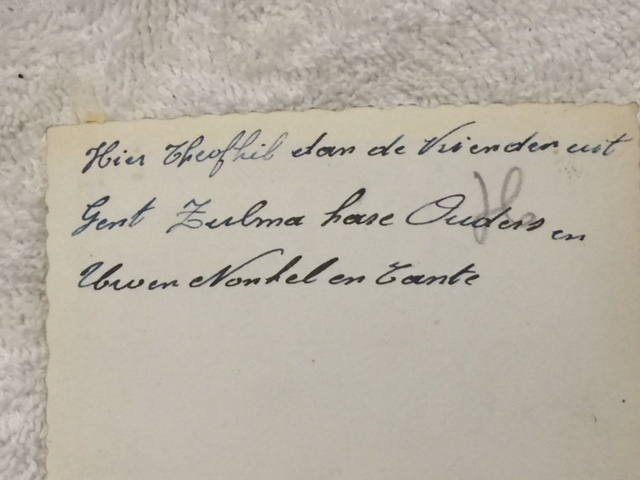 Hier Theofhil dan de Vrienden uit
Gent Zulma hare Ouders en
Uwen Nonkel en Tante